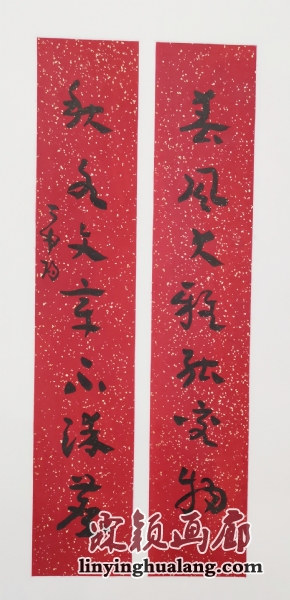 春风大雅能容物
秋水文章不染塵
颖画廊
linyinghualang.com